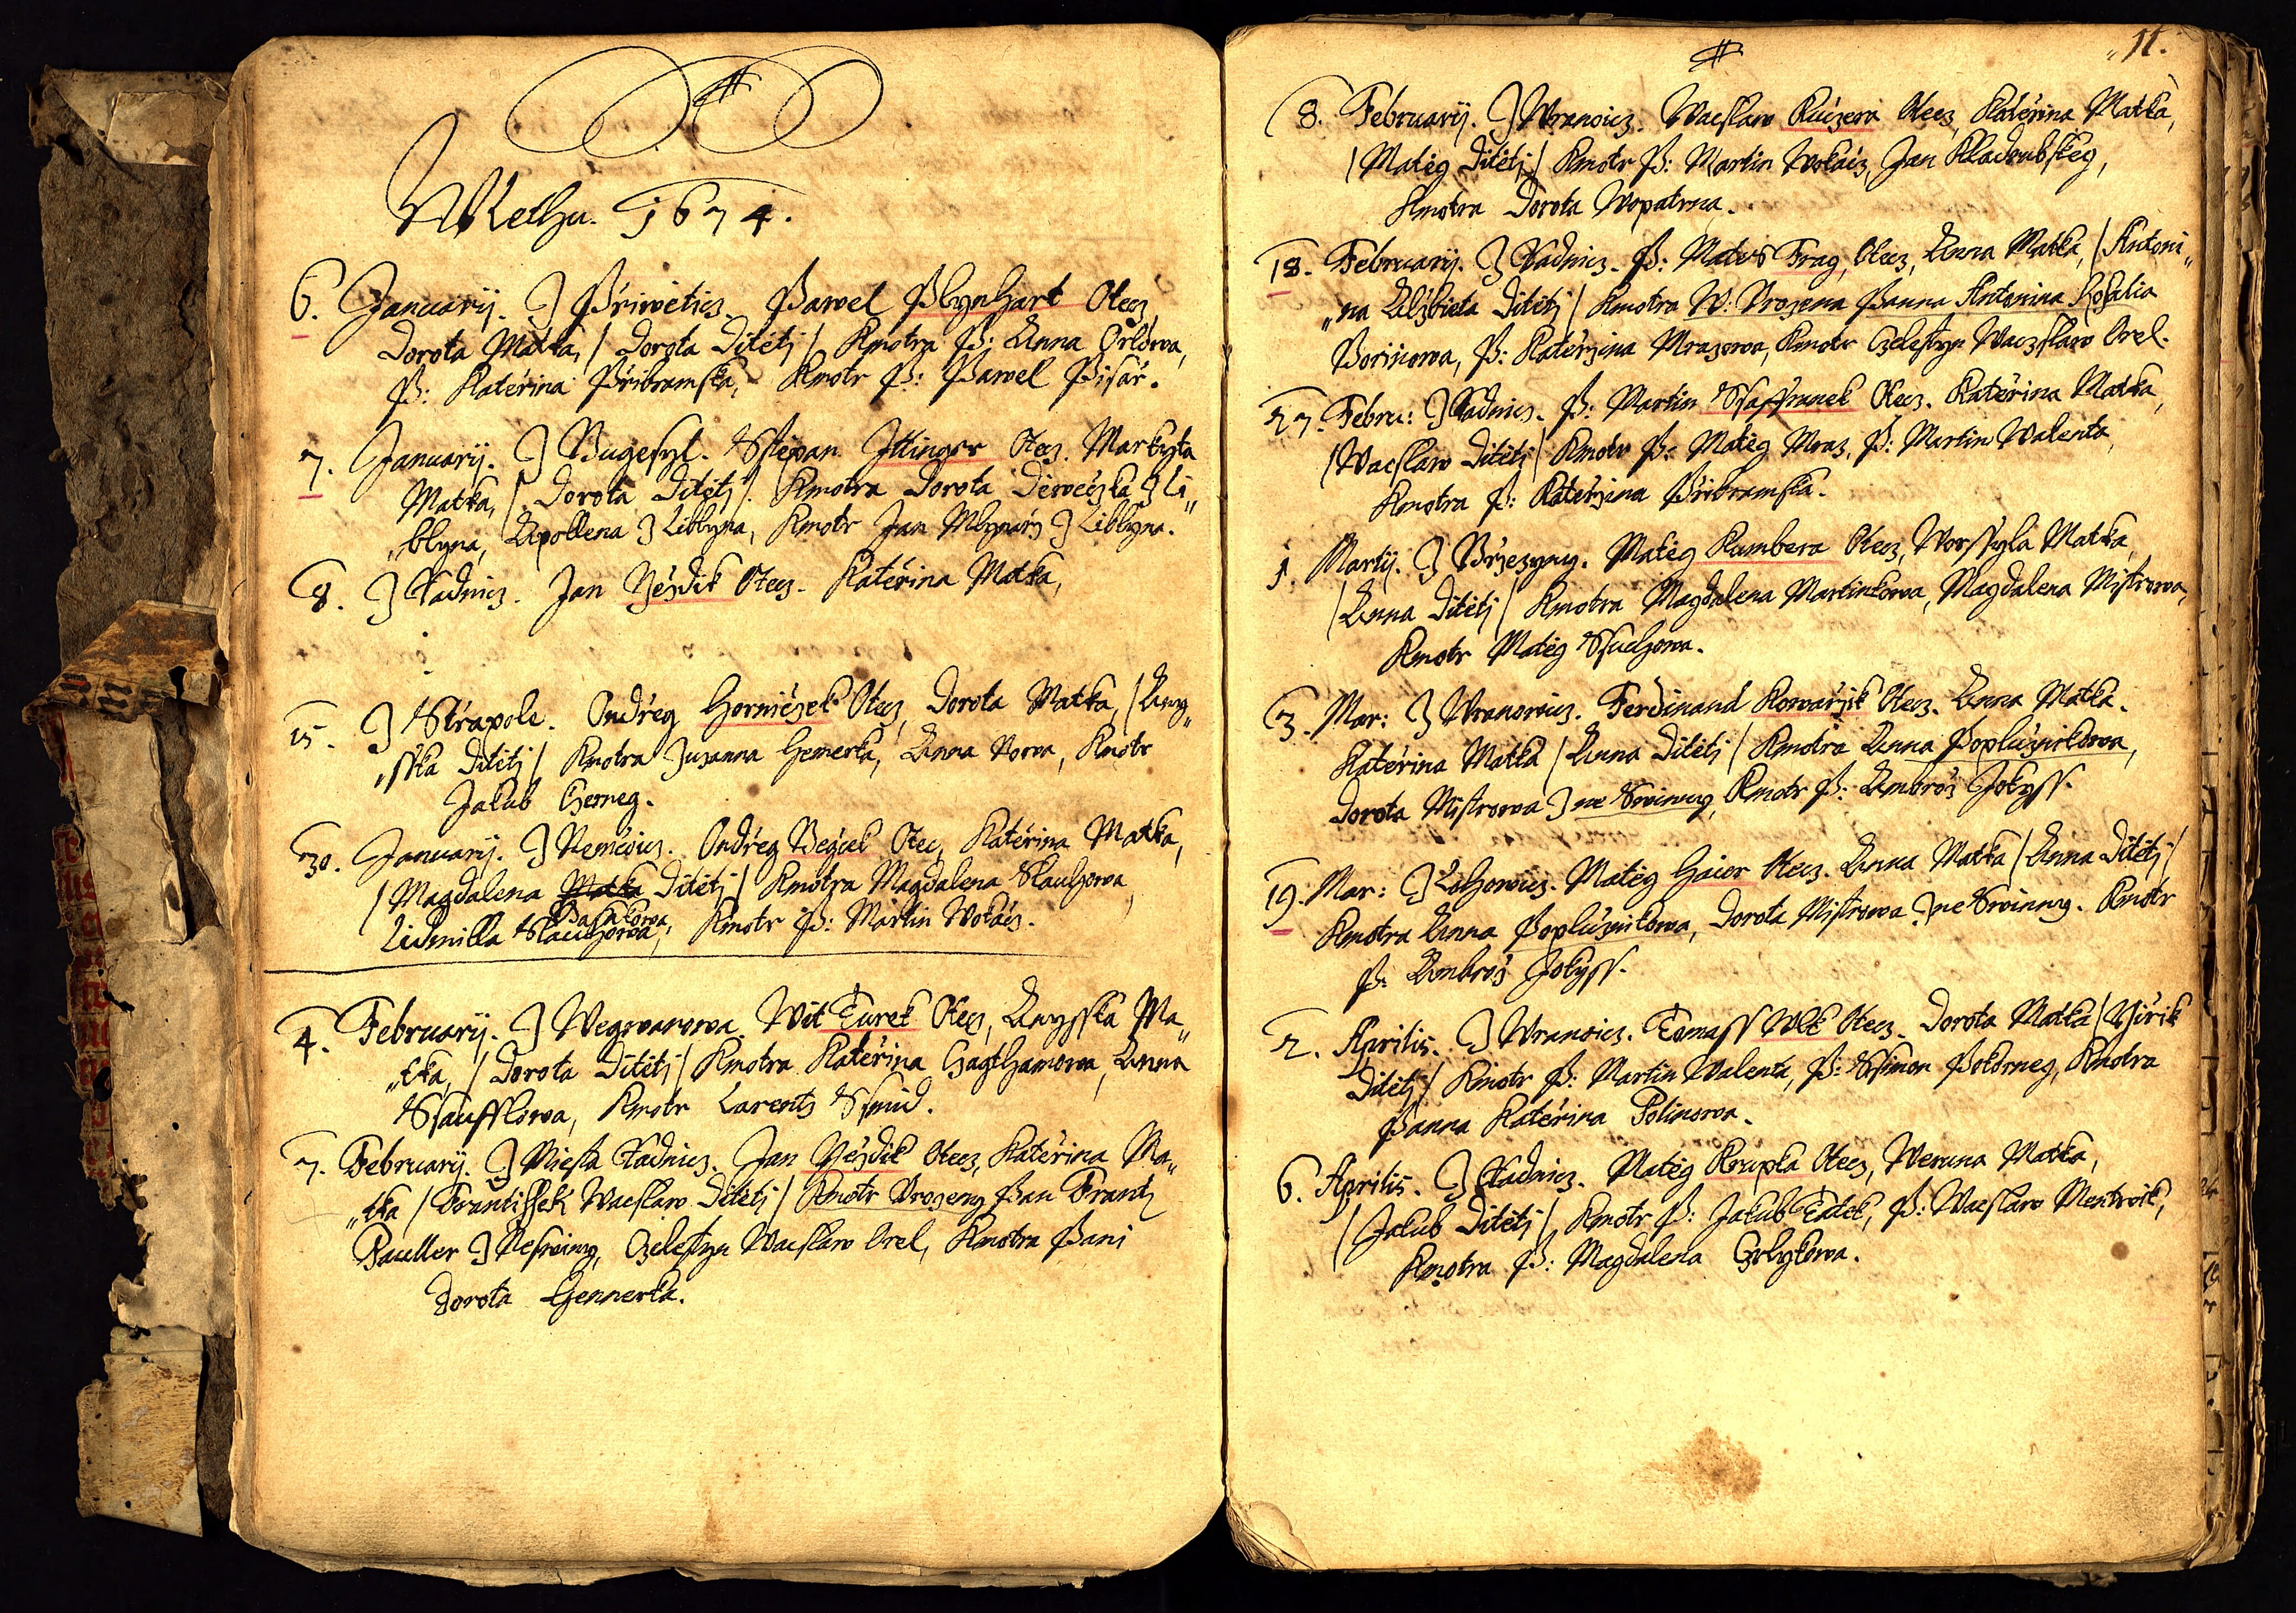 W Lethu. 1674.
6. Januarij. Z Přiwěticz. Pawel Plynhart Otecz,
Dorota Matka, / Dorota Ditětj / Kmotra P: Anna Orlowa,
P: Kateřina Přibramska, Kmotr P: Pawel Pisař.
7. Januarij. Z Bugesyl. Sstěpan Ittinger Otecz. Markyta
Matka, / Dorota Ditětj / Kmotra Dorota Děweczka z Li„
„blyna, Apollena z Liblyna, Kmotr Jan Mlynarz z Liblyna.
8. Z Radnicz. Jan Něydik Otecz. Kateřina Matka,
15. Z Střapole. Ondřeg Horničzek Otecz, Dorota Matka, / Any„
„sska Ditětj / Kmotra Zuzanna Hemerka, Anna Nowa, Kmotr
Jakub Czerneg.
30. Januarij. Z Němčicz. Ondřeg Begček Otecz, Kateřina Matka,
/ Magdalena Matka Ditětj / Kmotra Magdalena Slauhowa,
Basakowa
Lidmilla Slauhowa, Kmotr P: Martin Wokacz.
4. Februarij. Z Wegwanowa. Wit Turek Otecz, Anysska Ma„
„tka, / Dorota Ditětj / Kmotra Kateřina Hagthamowa, Anna
Sstaufflowa, Kmotr Larentz Ssmid.
7. Februarij. Z Miesta Radnicz. Jan Něydik Otecz, Kateřina Ma„
„tka / Frantissek Waclaw Ditětj / Kmotr Urozeny Pan Frantz
Pauller z Neswiny, Czelestyn Waclaw Orel, Kmotra Pani
Dorota Hennerka.
11.
8. Februarij. Z Wranowicz. Waclaw Kuczera Otecz, Kateřina Matka,
/ Matěg Ditětj / Kmotr P: Martin Wokacz, Jan Kladrubskey,
Kmotra Dorota Wopatrna.
18. Februarij. Z Radnicz. P: Mates Frag, Otecz, Anna Matka, / Antoni„
„na Alžbieta Ditětj / Kmotra W: Urozena Panna Antonina Rosalia
Bořinowa, P: Kateržina Mrazowa, Kmotr Czelestyn Waczslaw Orel.
27. Febru: Z Radnicz. P: Martin Ssaffranek Otecz. Kateřina Matka,
/ Waclaw Ditětj / Kmotr P: Matěg Mraz, P: Martin Walenta,
Kmotra P: Kateržina Přibramska.
1. Martij. Z Brzezyny. Matěg Kumbera Otecz, Worssyla Matka,
/ Anna Ditětj / Kmotra Magdalena Martinkowa, Magdalena Mistrowa,
Kmotr Matěg Ssuchowa.
3. Mar: Z Wranowicz. Ferdinand Kowařzik Otecz. Anna Matka.
Kateřina Matka / Anna Ditětj / Kmotra Anna Popluznikowa,
Dorota Mistrowa z ne Swinny, Kmotr P: Ambrož Jokyss.
19. Mar: Z Lhowicz. Matěg Haier Otecz. Anna Matka / Anna Ditětj /
Kmotra Anna Popluznikowa, Dorota Mistrowa z ne Swinny. Kmotr
P: Ambrož Jokyss.
2. Aprilis. Z Wranowicz. Tomass Wlk Otecz. Dorota Matka / Giřik
Ditětj / Kmotr P: Martin Walenta, P: Ssimon Pokorneg, Kmotra
Panna Kateřina Polinowa.
6. Aprilis. Z Radnicz. Matěg Krupka Otecz, Weruna Matka,
/ Jakub Ditětj / Kmotr P: Jakub Tatek, P: Waclaw Mentwik,
Kmotra P: Magdalena Czrlykowa.